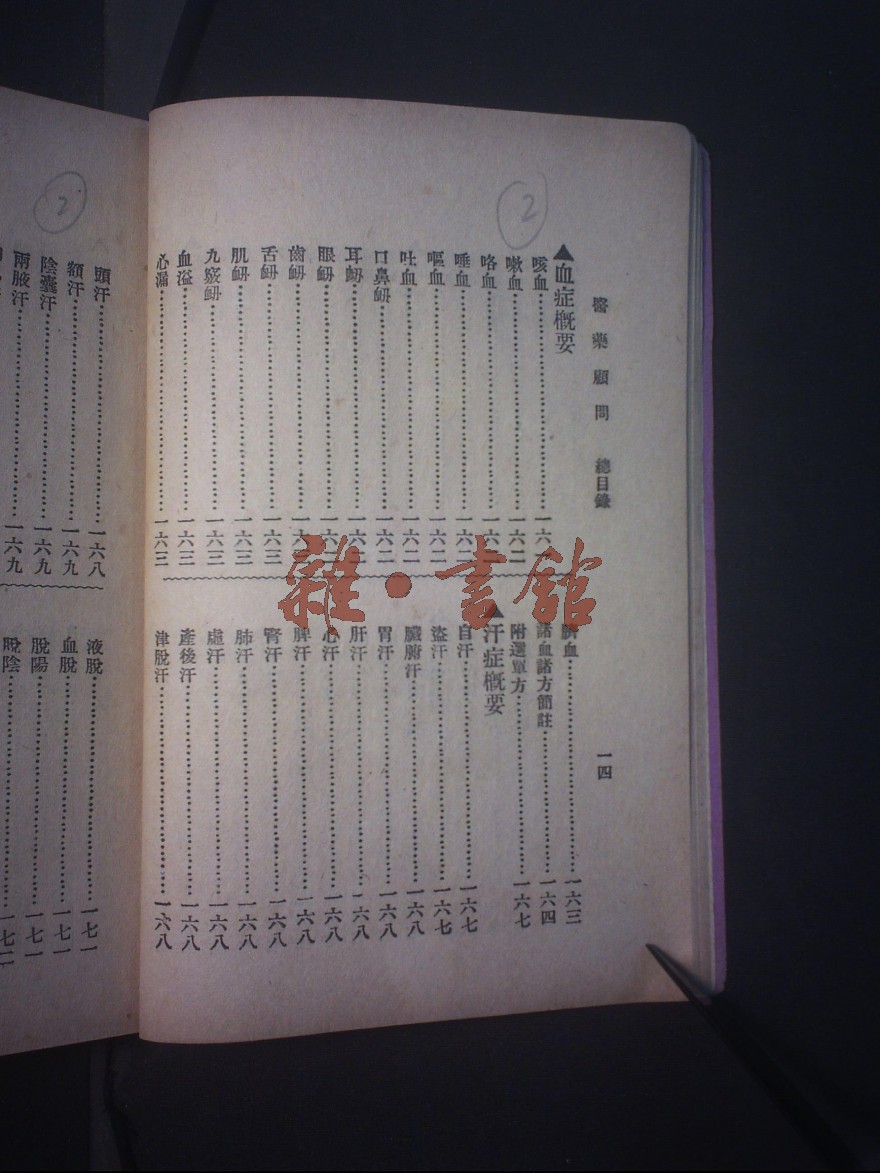 醫藥顧問 總目錄 一四
2
▲血症概要
咳血 一六
嗽血 一六二
咯血 一六
唾血 一六
嘔血 一六二
吐血 一六二
口鼻衄 一六二
耳衄 一六
眼衄 一六
齒衄 一六
舌衄 一六三
肌衄 一六三
九竅衄 一六三
血溢 一六三
心漏 一六三
臍血 一六三
諸血諸方簡註 一六四
附選單方 一六七
▲汗症概要
自汗 一六七
盜汗 一六七
臟腑汗 一六八
胃汗 一六八
肝汗 一六八
心汗 一六八
脾汗 一六八
腎汗 一六八
肺汗 一六八
虛汗 一六八
產後汗 一六八
津脫汗 一六八
2
頭汗 一六八
額汗 一六九
陰囊汗 一六九
兩腋汗 一六九
液脫 一七一
血脫 一七一
脫陽 一七一
脫陰 一七二
雜·書館